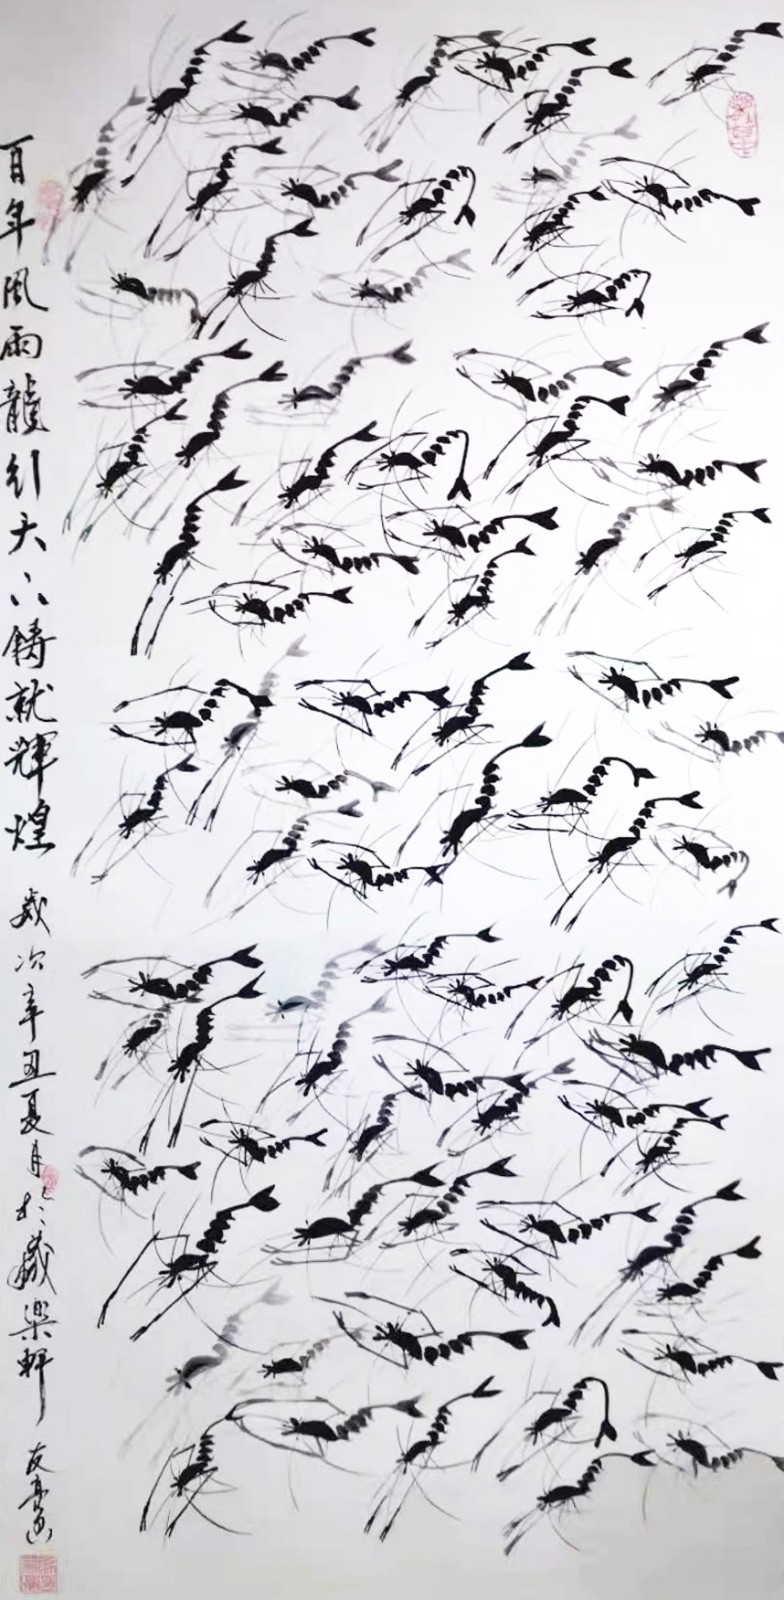 百年風雨龍引天下鑄就輝煌 歲次辛丑夏月於藏樂軒 友